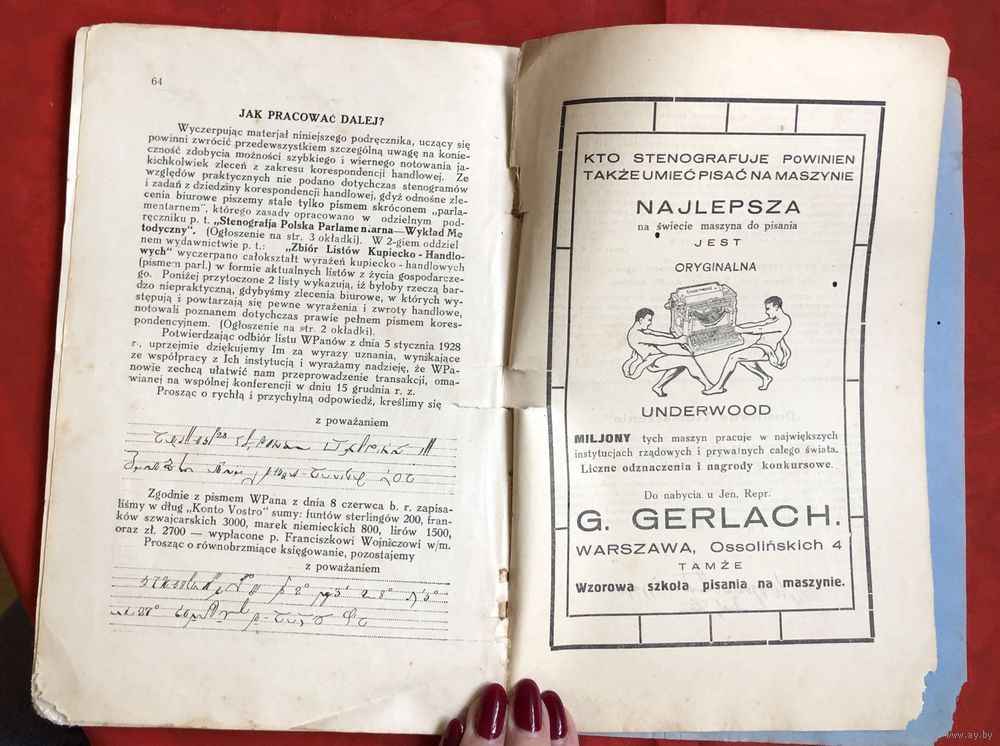 64
JAK PRACOWAĆ DALEJ?
Wyczerpując materjał niniejszego podręcznika, uczący się
powinni zwrócić przedewszystkiem szczególną uwagę na konie-
czność zdobycia możności szybkiego i wiernego notowania ja-
kichkolwiek zleceń z zakresu korespondencji handlowej. Ze
względów praktycznych nie podano dotychczas stenogramów
i zadań z dziedziny korespondencji handlowej, gdyż odnośne zle-
cenia biurowe piszemy stale tylko pismem skróconem „parla-
mentarnem", którego zasady opracowano w odzielnym pod-
ręczniku p. t. „Stenografja Polska Parlamentarna—Wykład Me
todyczny". (Ogłoszenie na str. 3 okładki). W 2-giem oddziel
nem wydawnictwie p. t.: „Zbiór Listów Kupiecko - Handlo-
wych" wyczerpano całokształt wyrażeń kupiecko - handlowych
(pismem parl.) w formie aktualnych listów z życia gospodarcze-
go. Poniżej przytoczone 2 listy wykazują, iż byłoby rzeczą bar-
dzo niepraktyczną, gdybyśmy zlecenia biurowe, w których wy-
stępują i powtarzają się pewne wyrażenia i zwroty handlowe,
notowali poznanem dotychczas prawie pełnem pismem kores-
pondencyjnem. (Ogłoszenie na str. 2 okładki).
Potwierdzając odbiór listu WPanów z dnia 5 stycznia 1928
r., uprzejmie dziękujemy Im za wyrazy uznania, wynikające
ze współpracy z Ich instytucją i wyrażamy nadzieję, że WPa-
nowie zechcą ułatwić nam przeprowadzenie transakcji, oma-
wianej na wspólnej konferencji w dniu 15 grudnia r. z.
Prosząc o rychłą i przychylną odpowiedź, kreślimy się
z poważaniem
Zgodnie z pismem WPana z dnia 8 czerwca b. r. zapisa-
liśmy w dług „Konto Vostro" sumy: funtów sterlingów 200, fran-
ków szwajcarskich 3000, marek niemieckich 800, lirów 1500,
oraz zł. 2700 — wypłacone p. Franciszkowi Wojniczowi w/m.
Prosząc o równobrzmiące księgowanie, pozostajemy
z poważaniem
KTO STENOGRAFUJE POWINIEN
TAKŻE UMIEĆ PISAĆ NA MASZYNIE
NAJLEPSZA
na świecie maszyna do pisania
JEST
ORYGINALNA
Underwood
UNDERWOOD
MILJONY tych maszyn pracuje w największych
instytucjach rządowych i prywatnych całego świata.
Liczne odznaczenia i nagrody konkursowe.
Do nabycia u Jen. Repr.
G. GERLACH.
WARSZAWA, Ossolińskich 4
TAMŻE
Wzorowa szkoła pisania na maszynie.
www.ay.by